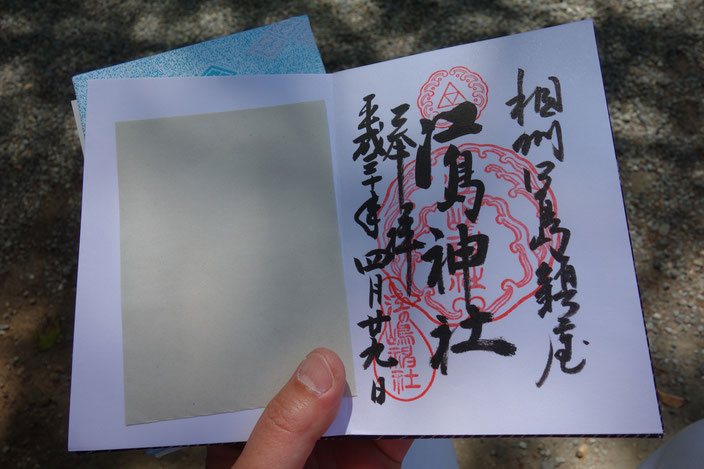 相州江島鎮座
江島神社
奉拝
平成三十年四月廿九日